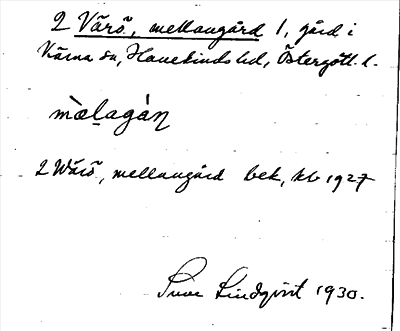 2 Vårö, mellangård 1, gård i
Kärna sn, Hanekinds hd, Östergötl. l.
mæ̀lagàɳ
2 Wårö, mellangård bek, kb 1927
Sune Lindqvist 1930.